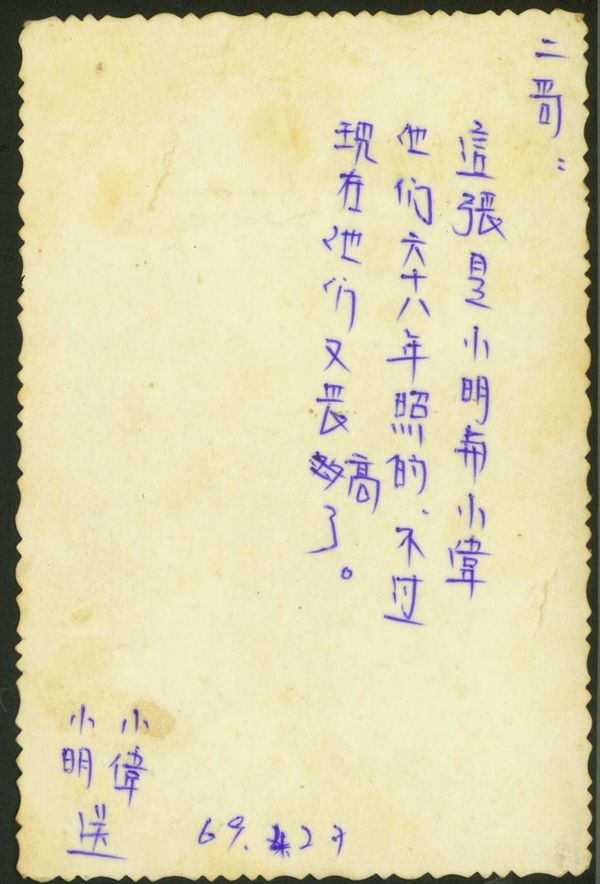 二哥：
這張是小明與小偉
他们六十八年照的、不过
現在他们又長高了。
小偉
小明送
69. 4 27